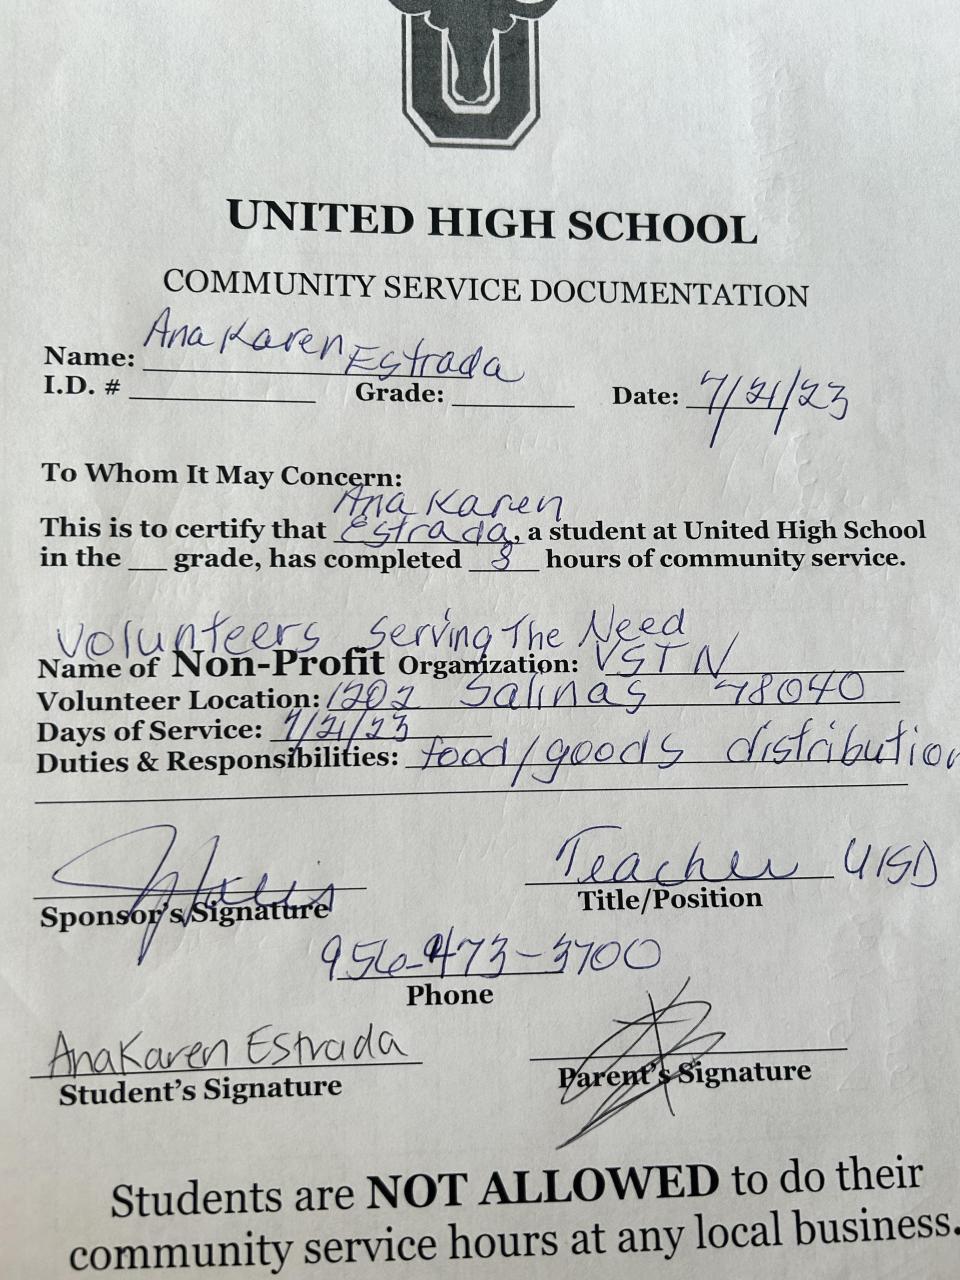 U
UNITED HIGH SCHOOL
COMMUNITY SERVICE DOCUMENTATION
Name: Ana Karen Estrada
I.D. # Grade: Date: 7/21/23
To Whom It May Concern:
Ana Karen
This is to certify that Estrada, a student at United High School
in the ___ grade, has completed 8 hours of community service.
Volunteers Serving The Need
Name of Non-Profit Organization: VSTN
Volunteer Location: 1202 Salinas 78040
Days of Service: 7/21/23
Duties & Responsibilities: food/goods distribution
Teacher UISD
Sponsor's Signature Title/Position
956-473-3700
Phone
AnaKaren Estrada
Student's Signature Parent's Signature
Students are NOT ALLOWED to do their
community service hours at any local business.